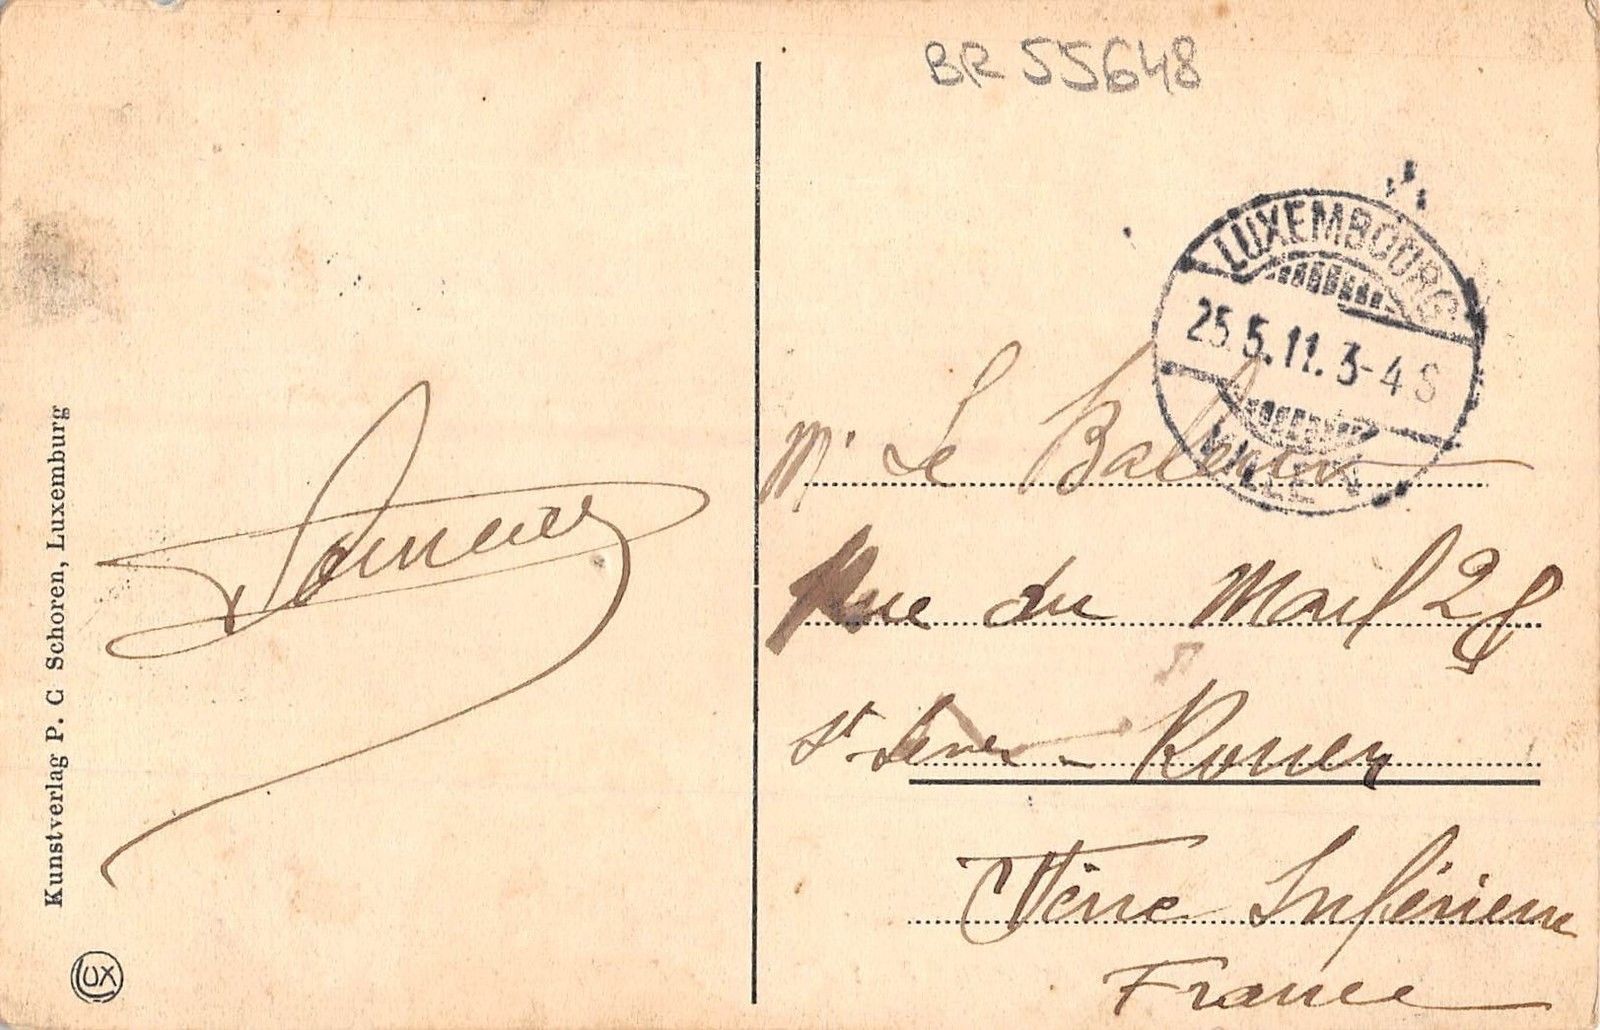 BR 55648
LUXEMBOURG
25.5.11. 3-4 S
VILLE
Mr Le
Rue du Mail 28
St Sever - Rouen
Seine Inférieure
France
Kunstverlag P. C Schoren, Luxemburg
LUX